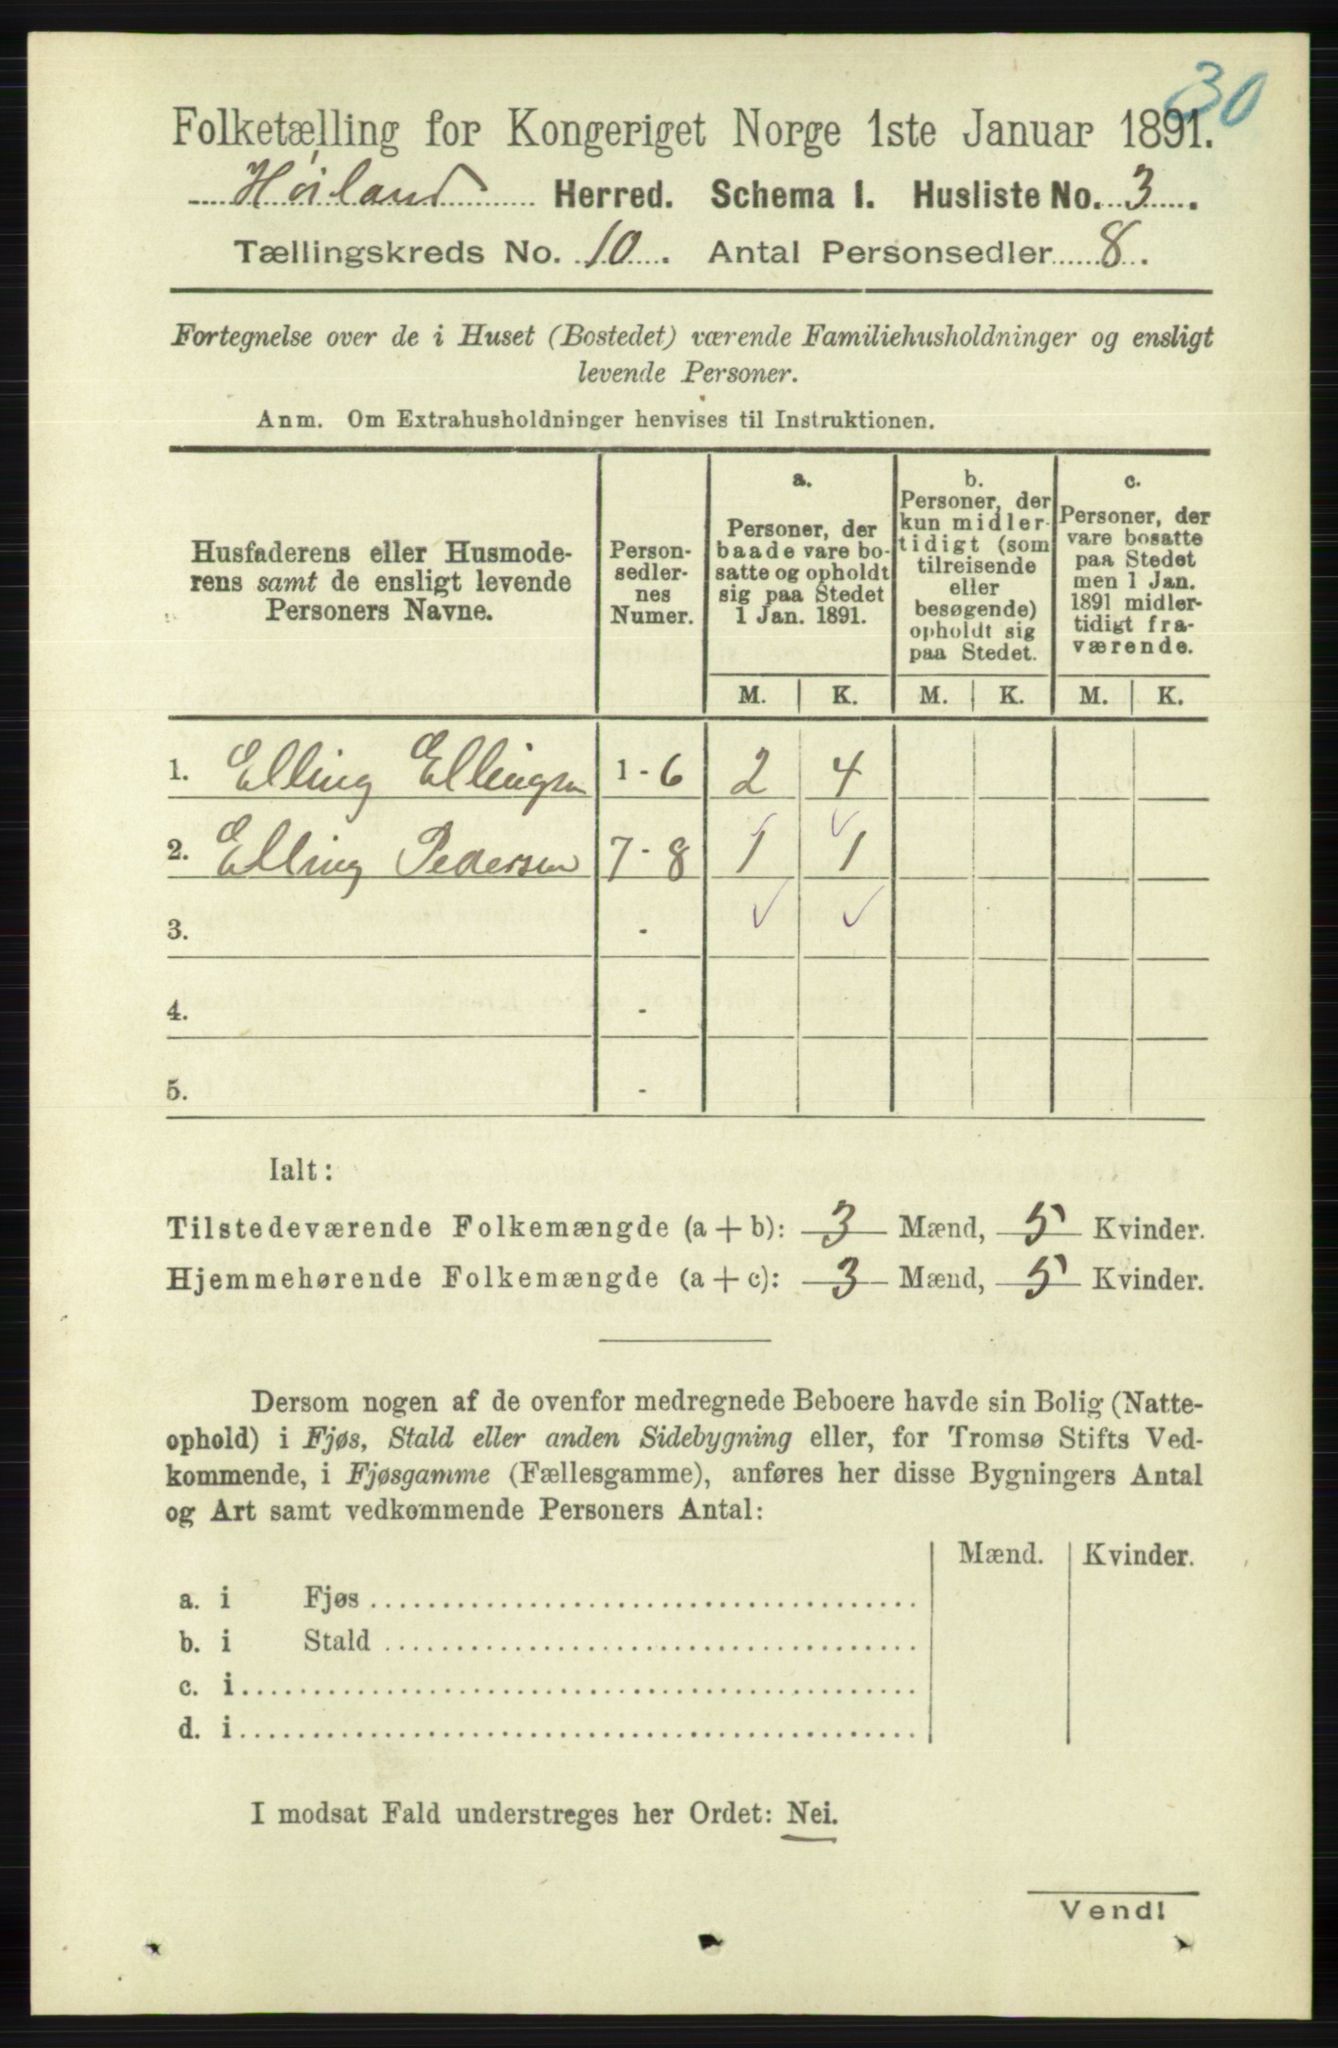 30
Folketælling for Kongeriget Norge 1ste Januar 1891.
Høiland Herred. Schema I. Husliste No. 3.
Tællingskreds No. 10. Antal Personsedler 8.
Fortegnelse over de i Huset (Bostedet) værende Familiehusholdninger og ensligt
levende Personer.
Anm. Om Extrahusholdninger henvises til Instruktionen.
Husfaderens eller Husmode-
rens samt de ensligt levende
Personers Navne.
Person-
sedler-
nes
Numer.
a.
Personer, der
baade vare bo-
satte og opholdt
sig paa Stedet
1 Jan. 1891.
b.
Personer, der
kun midler-
tidigt (som
tilreisende
eller
besøgende)
opholdt sig
paa Stedet.
c.
Personer, der
vare bosatte
paa Stedet
men 1 Jan.
1891 midler-
tidigt fra-
værende.
M. K. M. K. M. K.
1. Elling Ellingsen 1 - 6 2 4
2. Elling Pedersen 7 - 8 1 1
3. -
4. -
5. -
Ialt:
Tilstedeværende Folkemængde (a + b): 3 Mænd, 5 Kvinder.
Hjemmehørende Folkemængde (a + c): 3 Mænd, 5 Kvinder.
Dersom nogen af de ovenfor medregnede Beboere havde sin Bolig (Natte-
ophold) i Fjøs, Stald eller anden Sidebygning eller, for Tromsø Stifts Ved-
kommende, i Fjøsgamme (Fællesgamme), anføres her disse Bygningers Antal
og Art samt vedkommende Personers Antal:
Mænd. Kvinder.
a. i Fjøs
b. i Stald
c. i
d. i
I modsat Fald understreges her Ordet: Nei.
Vend!